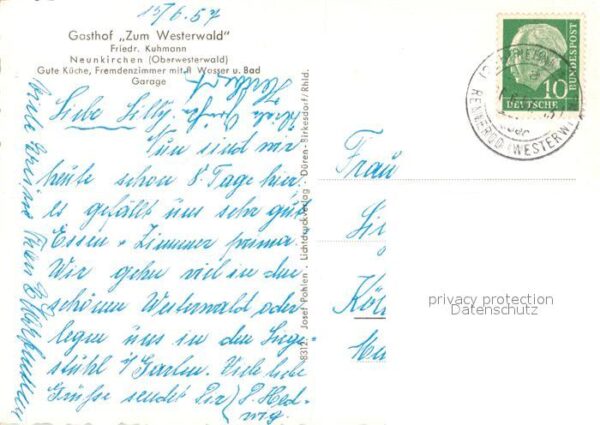 15/6.57
Gasthof „Zum Westerwald"
Friedr. Kuhmann
Neunkirchen (Oberwesterwald)
Gute Küche, Fremdenzimmer mit fl. Wasser u. Bad
Garage
Liebe Lilly.
Nun sind wir
heute schon 8 Tage hier
es gefällt uns sehr gut
Essen + Zimmer prima.
Wir gehn viel in den
schönen Westerwald oder
legen uns in den Liege-
stühl i/ Garten. Viele liebe
Grüße sendet Dir
Hed-
wig
Viele Grüße
Herbert
Viele Grüße
8312 Josef Pohlen · Lichtdruckverlag · Düren-Birkesdorf/Rhld.
Frau
Köl
privacy protection
Datenschutz
10
DEUTSCHE
BUNDESPOST
RENNEROD (WESTERW